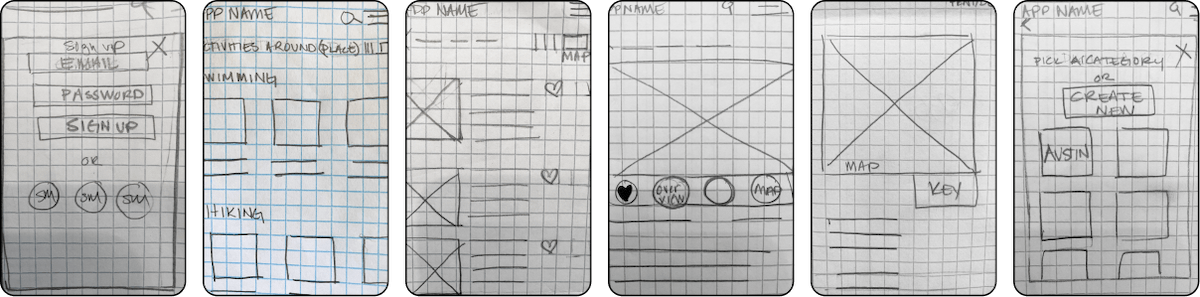 SIGN UP
EMAIL
PASSWORD
SIGN UP
OR
SM SM SM
PP NAME
CTIVITIES AROUND (PLACE)
WIMMING
HIKING
PP NAME
MAP
PNAME
OVER VIEW
MAP
MAP
KEY
APP NAME
PICK A CATEGORY
OR
CREATE
NEW
AUSTIN